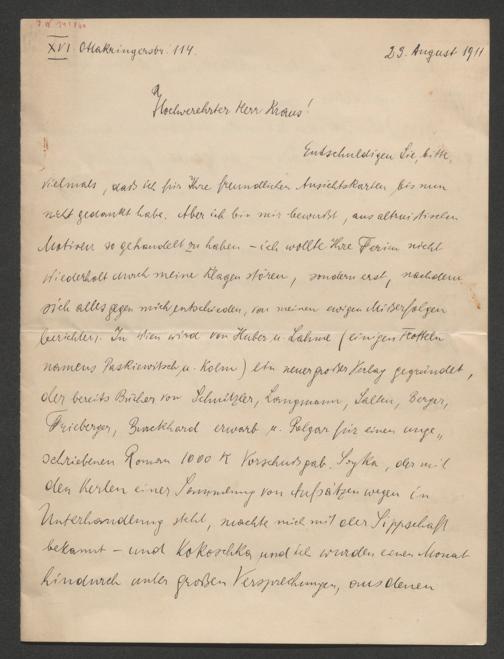 XVI. Ottakringerstr. 114.
23. August 1911
Hochverehrter Herr Kraus!
Entschuldigen Sie, bitte,
vielmals, daß ich für Ihre freundlichen Ansichtskarten bis nun
nicht gedankt habe. Aber ich bin mir bewußt, aus altruistischen
Motiven so gehandelt zu haben – ich wollte Ihre Ferien nicht
wiederholt durch meine Klagen stören, sondern erst, nachdem
sich alles gegen mich entschieden, von meinen ewigen Mißerfolgen
berichten. In Wien wird von Huber u. Lahme (einigen Trotteln
namens Paskiewitsch u. Kolm) ein neuer großer Verlag gegründet,
der bereits Bücher von Schnitzler, Langmann, Salten, Berger,
Trieberger, Burckhard erwarb u. Polgar für einen unge„
schriebenen Roman 1000 K Vorschuß gab. Soyka, der mit
den Kerlen einer Sammlung von Aufsätzen wegen in
Unterhandlung steht, machte mich mit der Sippschaft
bekannt – und Kokoschka und ich wurden einen Monat
hindurch unter großen Versprechungen, aus denen